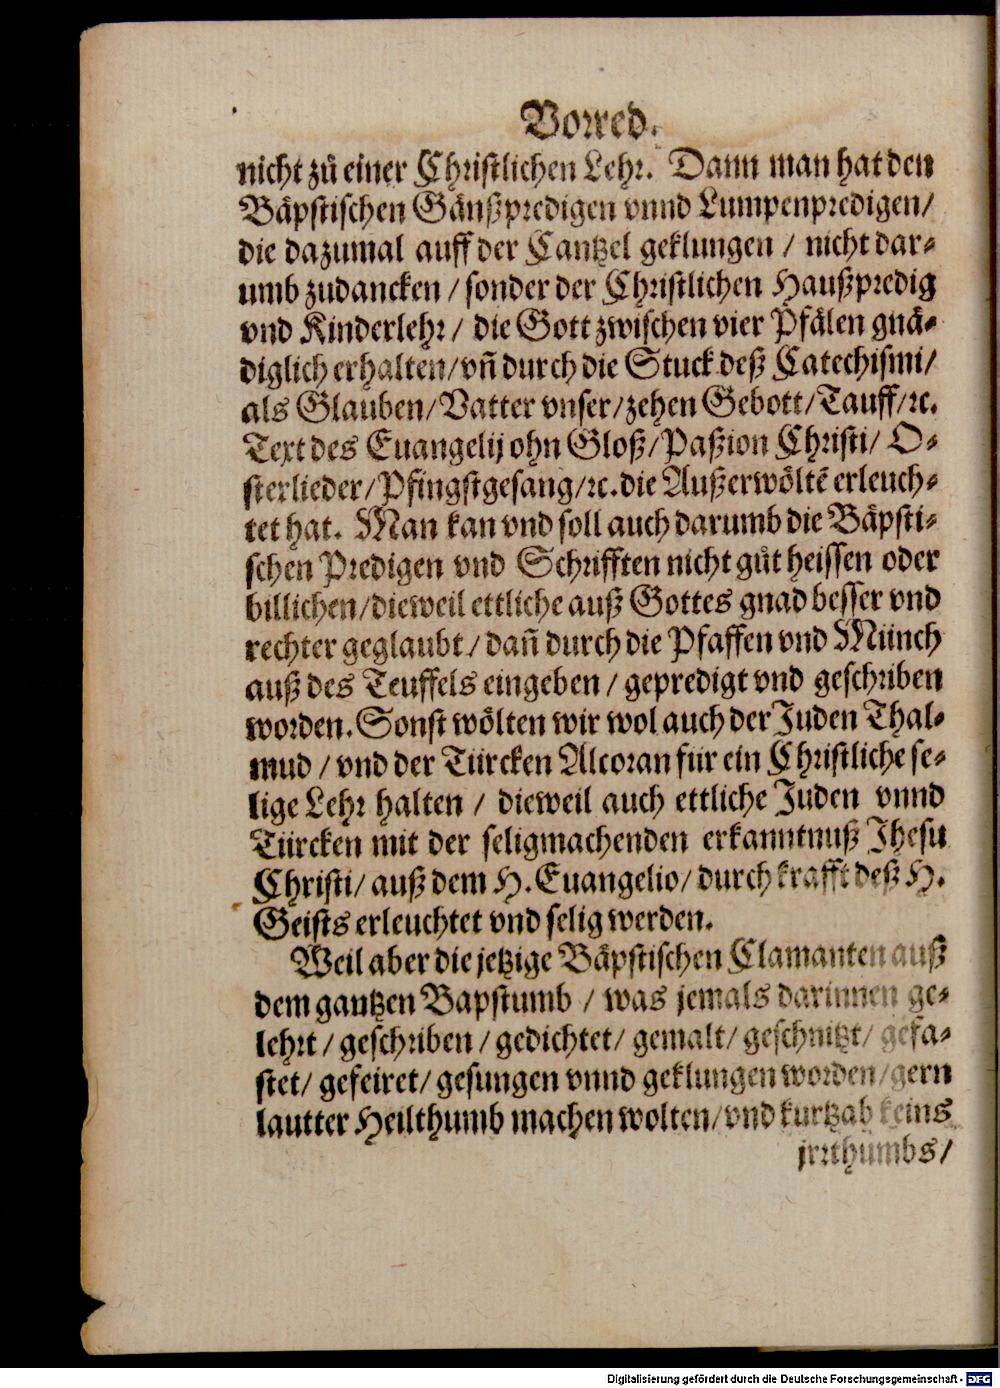 Vorred.
nicht zů einer Christlichen Lehr. Dann man hat den
Bäpstischen Gänßpredigen vnnd Lumpenpredigen/
die dazumal auff der Cantzel geklungen / nicht dar-
umb zudancken / sonder der Christlichen Haußpredig
vnd Kinderlehr / die Gott zwischen vier Pfälen gnä-
diglich erhalten/vñ durch die Stuck deß Catechismi/
als Glauben/Vatter vnser/zehen Gebott/Tauff/ꝛc.
Text des Euangelij ohn Gloß/Paßion Christi/ O-
sterlieder/Pfingstgesang/ꝛc. die Außerwöltẽ erleuch-
tet hat. Man kan vnd soll auch darumb die Bäpsti-
schen Predigen vnd Schrifften nicht gůt heissen oder
billichen/dieweil ettliche auß Gottes gnad besser vnd
rechter geglaubt / dañ durch die Pfaffen vnd Münch
auß des Teuffels eingeben / gepredigt vnd geschriben
worden. Sonst wölten wir wol auch der Juden Thal-
mud / vnd der Türcken Alcoran für ein Christliche se-
lige Lehr halten / dieweil auch ettliche Juden vnnd
Türcken mit der seligmachenden erkanntnuß Jhesu
Christi/ auß dem H. Euangelio/ durch krafft deß H.
Geists erleuchtet vnd selig werden.
Weil aber die jetzige Bäpstischen Clamanten auß
dem gantzen Bapstumb / was jemals darinnen ge-
lehrt / geschriben / gedichtet/ gemalt/ geschnitzt/ gefa-
stet/ gefeiret/ gesungen vnnd geklungen worden/gern
lautter Heilthumb machen wolten/vnd kurtzab keins
jrrthumbs/
Digitalisierung gefördert durch die Deutsche Forschungsgemeinschaft - DFG